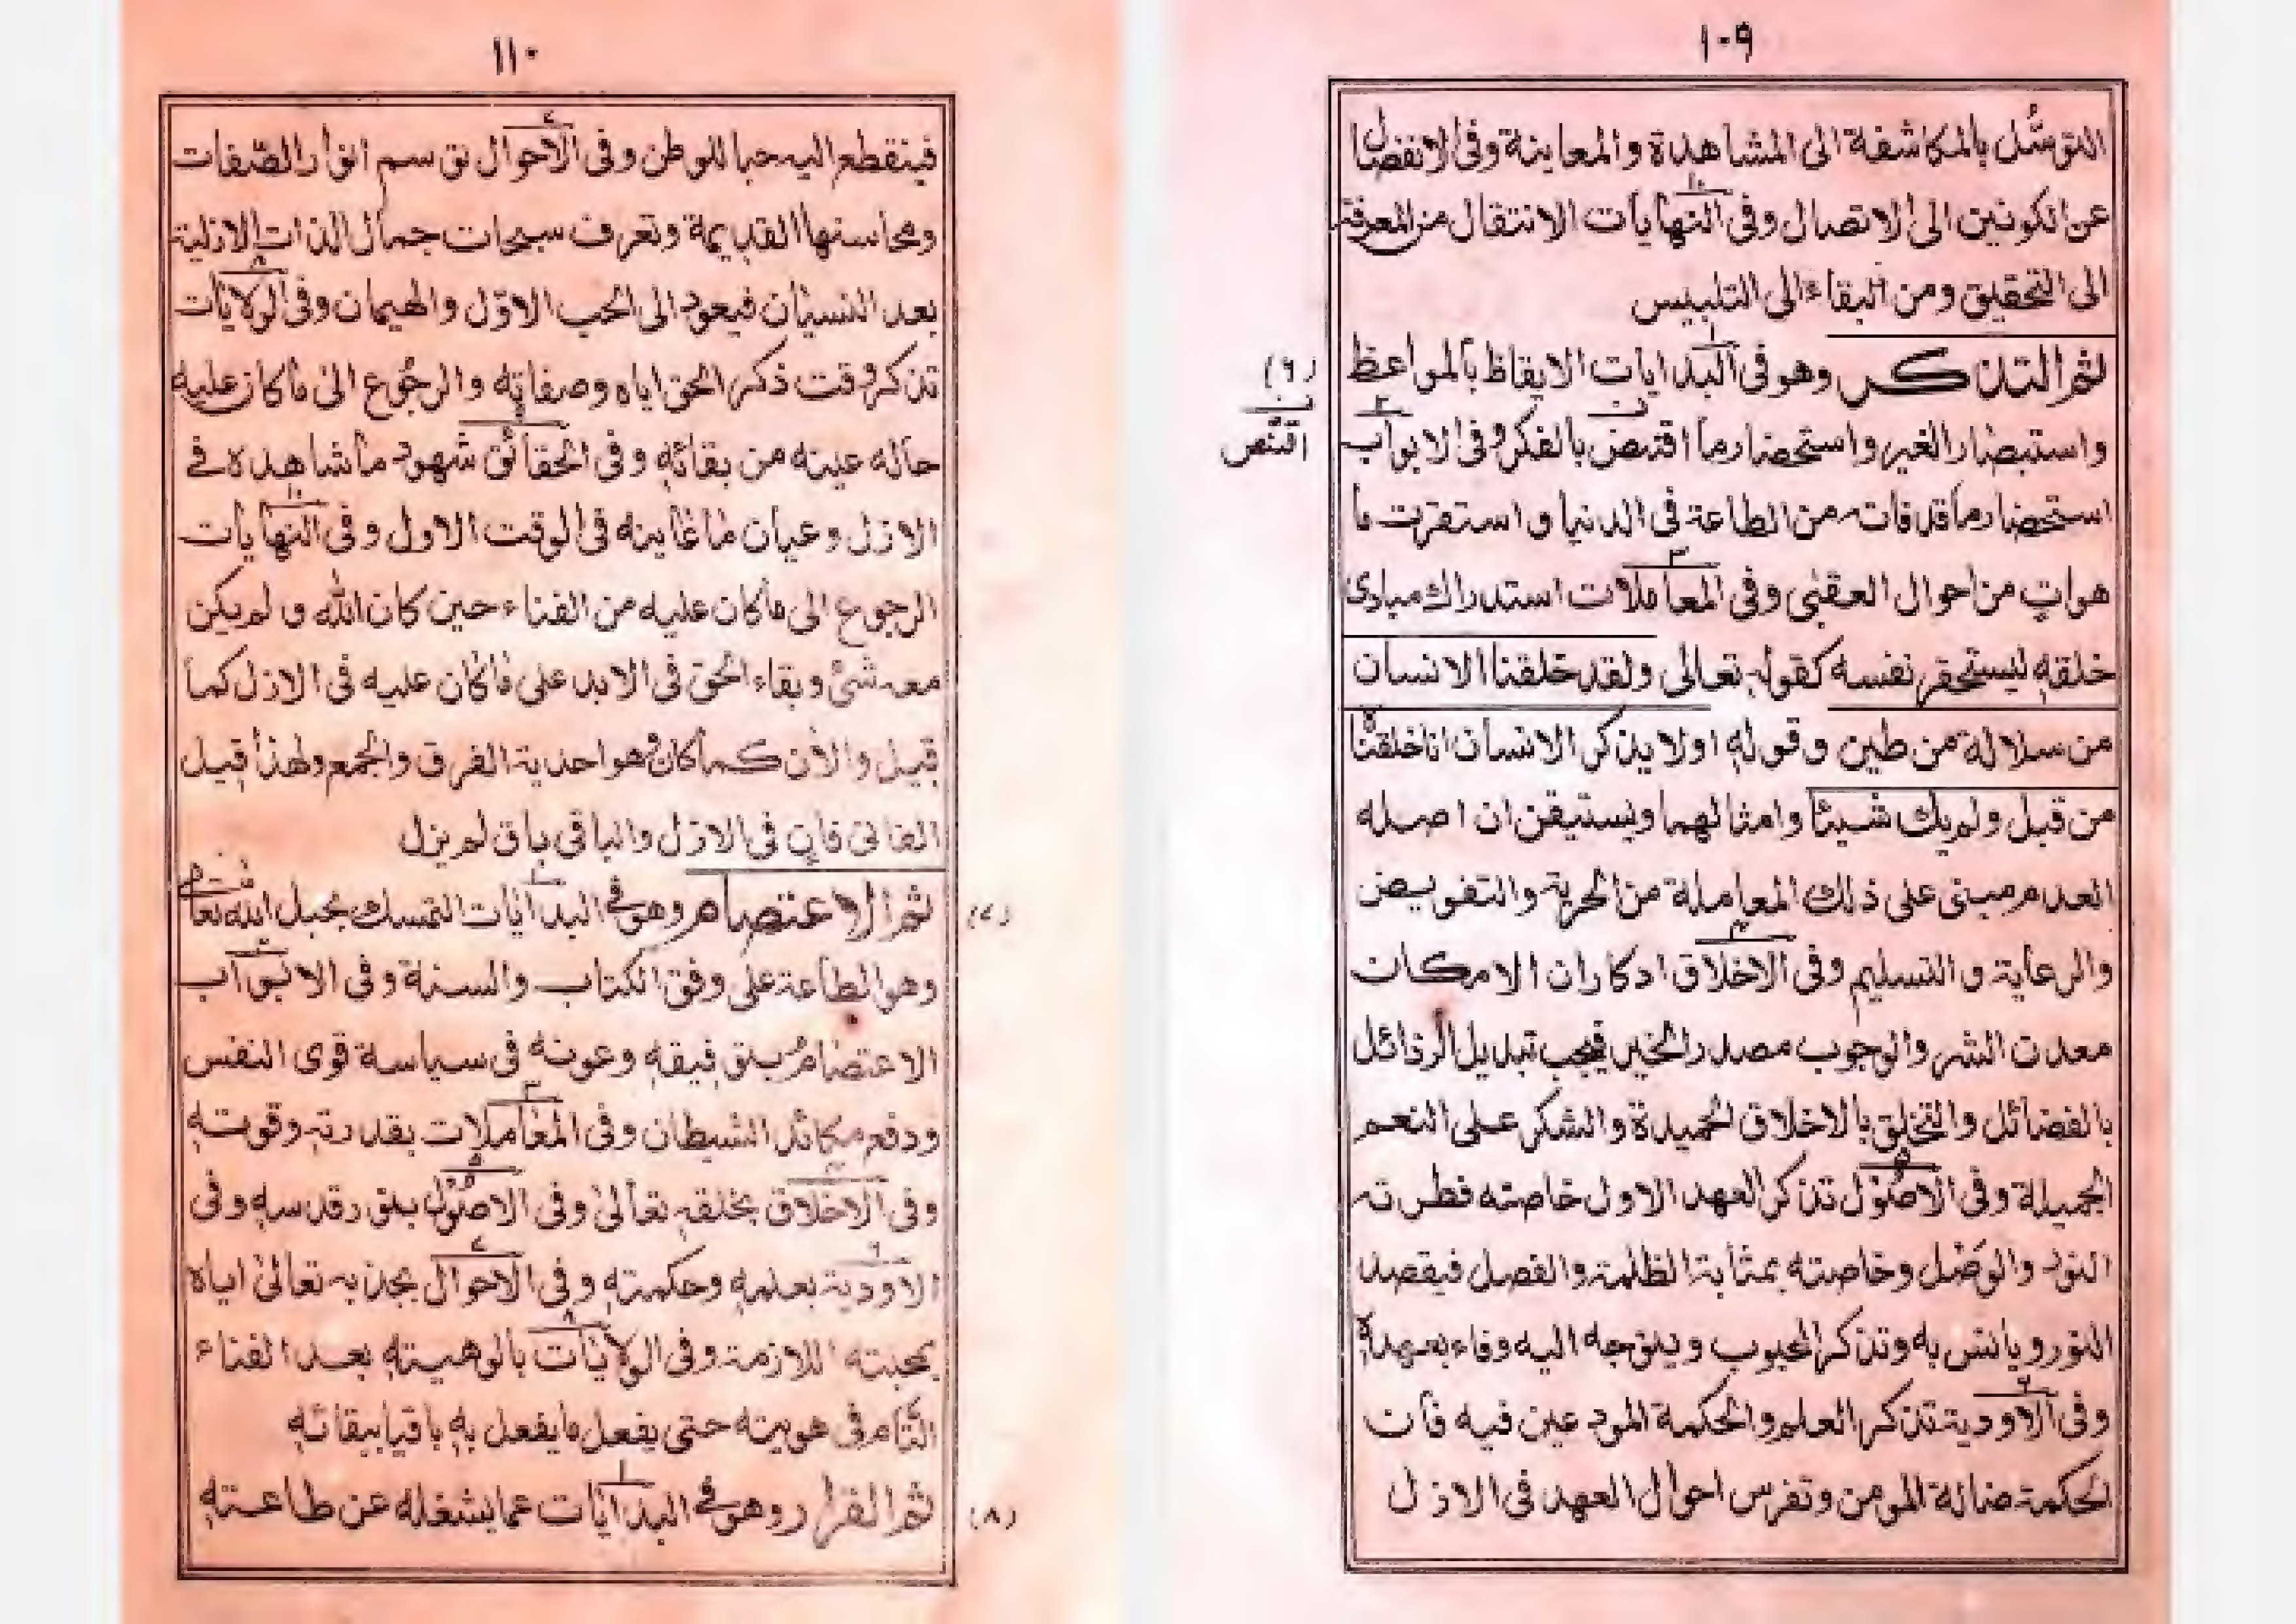 ١٠٩
التوسّل بالمكاشفة الى المشاهدة والمعاينة وفى الانفصال
عن الكونين الى الاتصال وفى النهايات الانتقال من المعرفة
الى التحقيق ومن البقاء الى التلبيس
ثم التذكر وهو فى البدايات الايقاظ بالمواعظ
(٦)
واستبصار الغير واستحضار ما اقتنص بالفكر وفى الابواب
اقتنص
استحضار ما قد فات من الطاعة فى الدنيا و استقرت ما
هوات من احوال العقبى وفى المعاملات استدراك مبادى
خلقه ليستحقر نفسه كقوله تعالى ولقد خلقنا الانسان
من سلالة من طين وقوله اولا يذكر الانسان انا خلقناه
من قبل ولم يك شيئا وامثالهما ويستيقن ان اصله
العدم مبنى على ذلك المعاملة من الحرية والتفويض
والرعاية والتسليم وفى الاخلاق ادكاران الامكان
معدن الشر والوجوب مصدر الخير فيجب تبديل الرذائل
بالفضائل والتخلق بالاخلاق الحميدة والشكر على النعم
الجميلة وفى الاصول تذكر العهد الاول خاصته فطرته
النور والوصل وخاصته بمثابة الظلمة والفصل فيقصد
النور ويانس به وتذكر المحبوب ويتوجه اليه وفاء بعهده
وفى الاودية تذكر العلم والحكمة المودعين فيه فان
الحكمة ضالة المومن وتفرس احوال العهد فى الازل
١١٠
فينقطع اليه حبا للوطن وفى الاحوال توسم انوار الصّفات
ومحاسنها القديمة وتعرف سبحات جمال الذات الازلية
بعد النسيان فيعود الى الحب الاوّل والهيمان وفى الولايات
تذكر وقت ذكر الحق اياه وصفاته والرجوع الى ما كان عليه
حاله عينه من بقائه وفى الحقائق شهود ما شاهده فى
الازل وعيان ما عاينه فى الوقت الاول وفى النهايات
الرجوع الى ما كان عليه من الفناء حين كان الله و لم يكن
معه شئ وبقاء الحق فى الابد على ما كان عليه فى الازل كما
قيل والأن كما كان وهو احدية الفرق والجمع ولهذا قيل
الفانى فان فى الازل والباقى باق لم يزل
ثم الاعتصام وهو فى البدايات التمسك بحبل الله تعالى
(٧)
وهو الطاعة على وفق الكتاب والسنة وفى الابواب
الاعتصام بتوفيقه وعونه فى سياسة قوى النفس
ودفع مكائد الشيطان وفى المعاملات بقدرته وقوته
وفى الاخلاق بخلقه تعالى وفى الاصول بنور قدسه وفى
الاودية بعلمه وحكمته وفى الاحوال بجذبه تعالى اياه
بمحبته اللازمة وفى الولايات بالوهيته بعد الفناء
التام فى هويته حتى يفعل ما يفعل به باقيا ببقائه
ثم الفرار وهو فى البدايات عما يشغله عن طاعته
(٨)